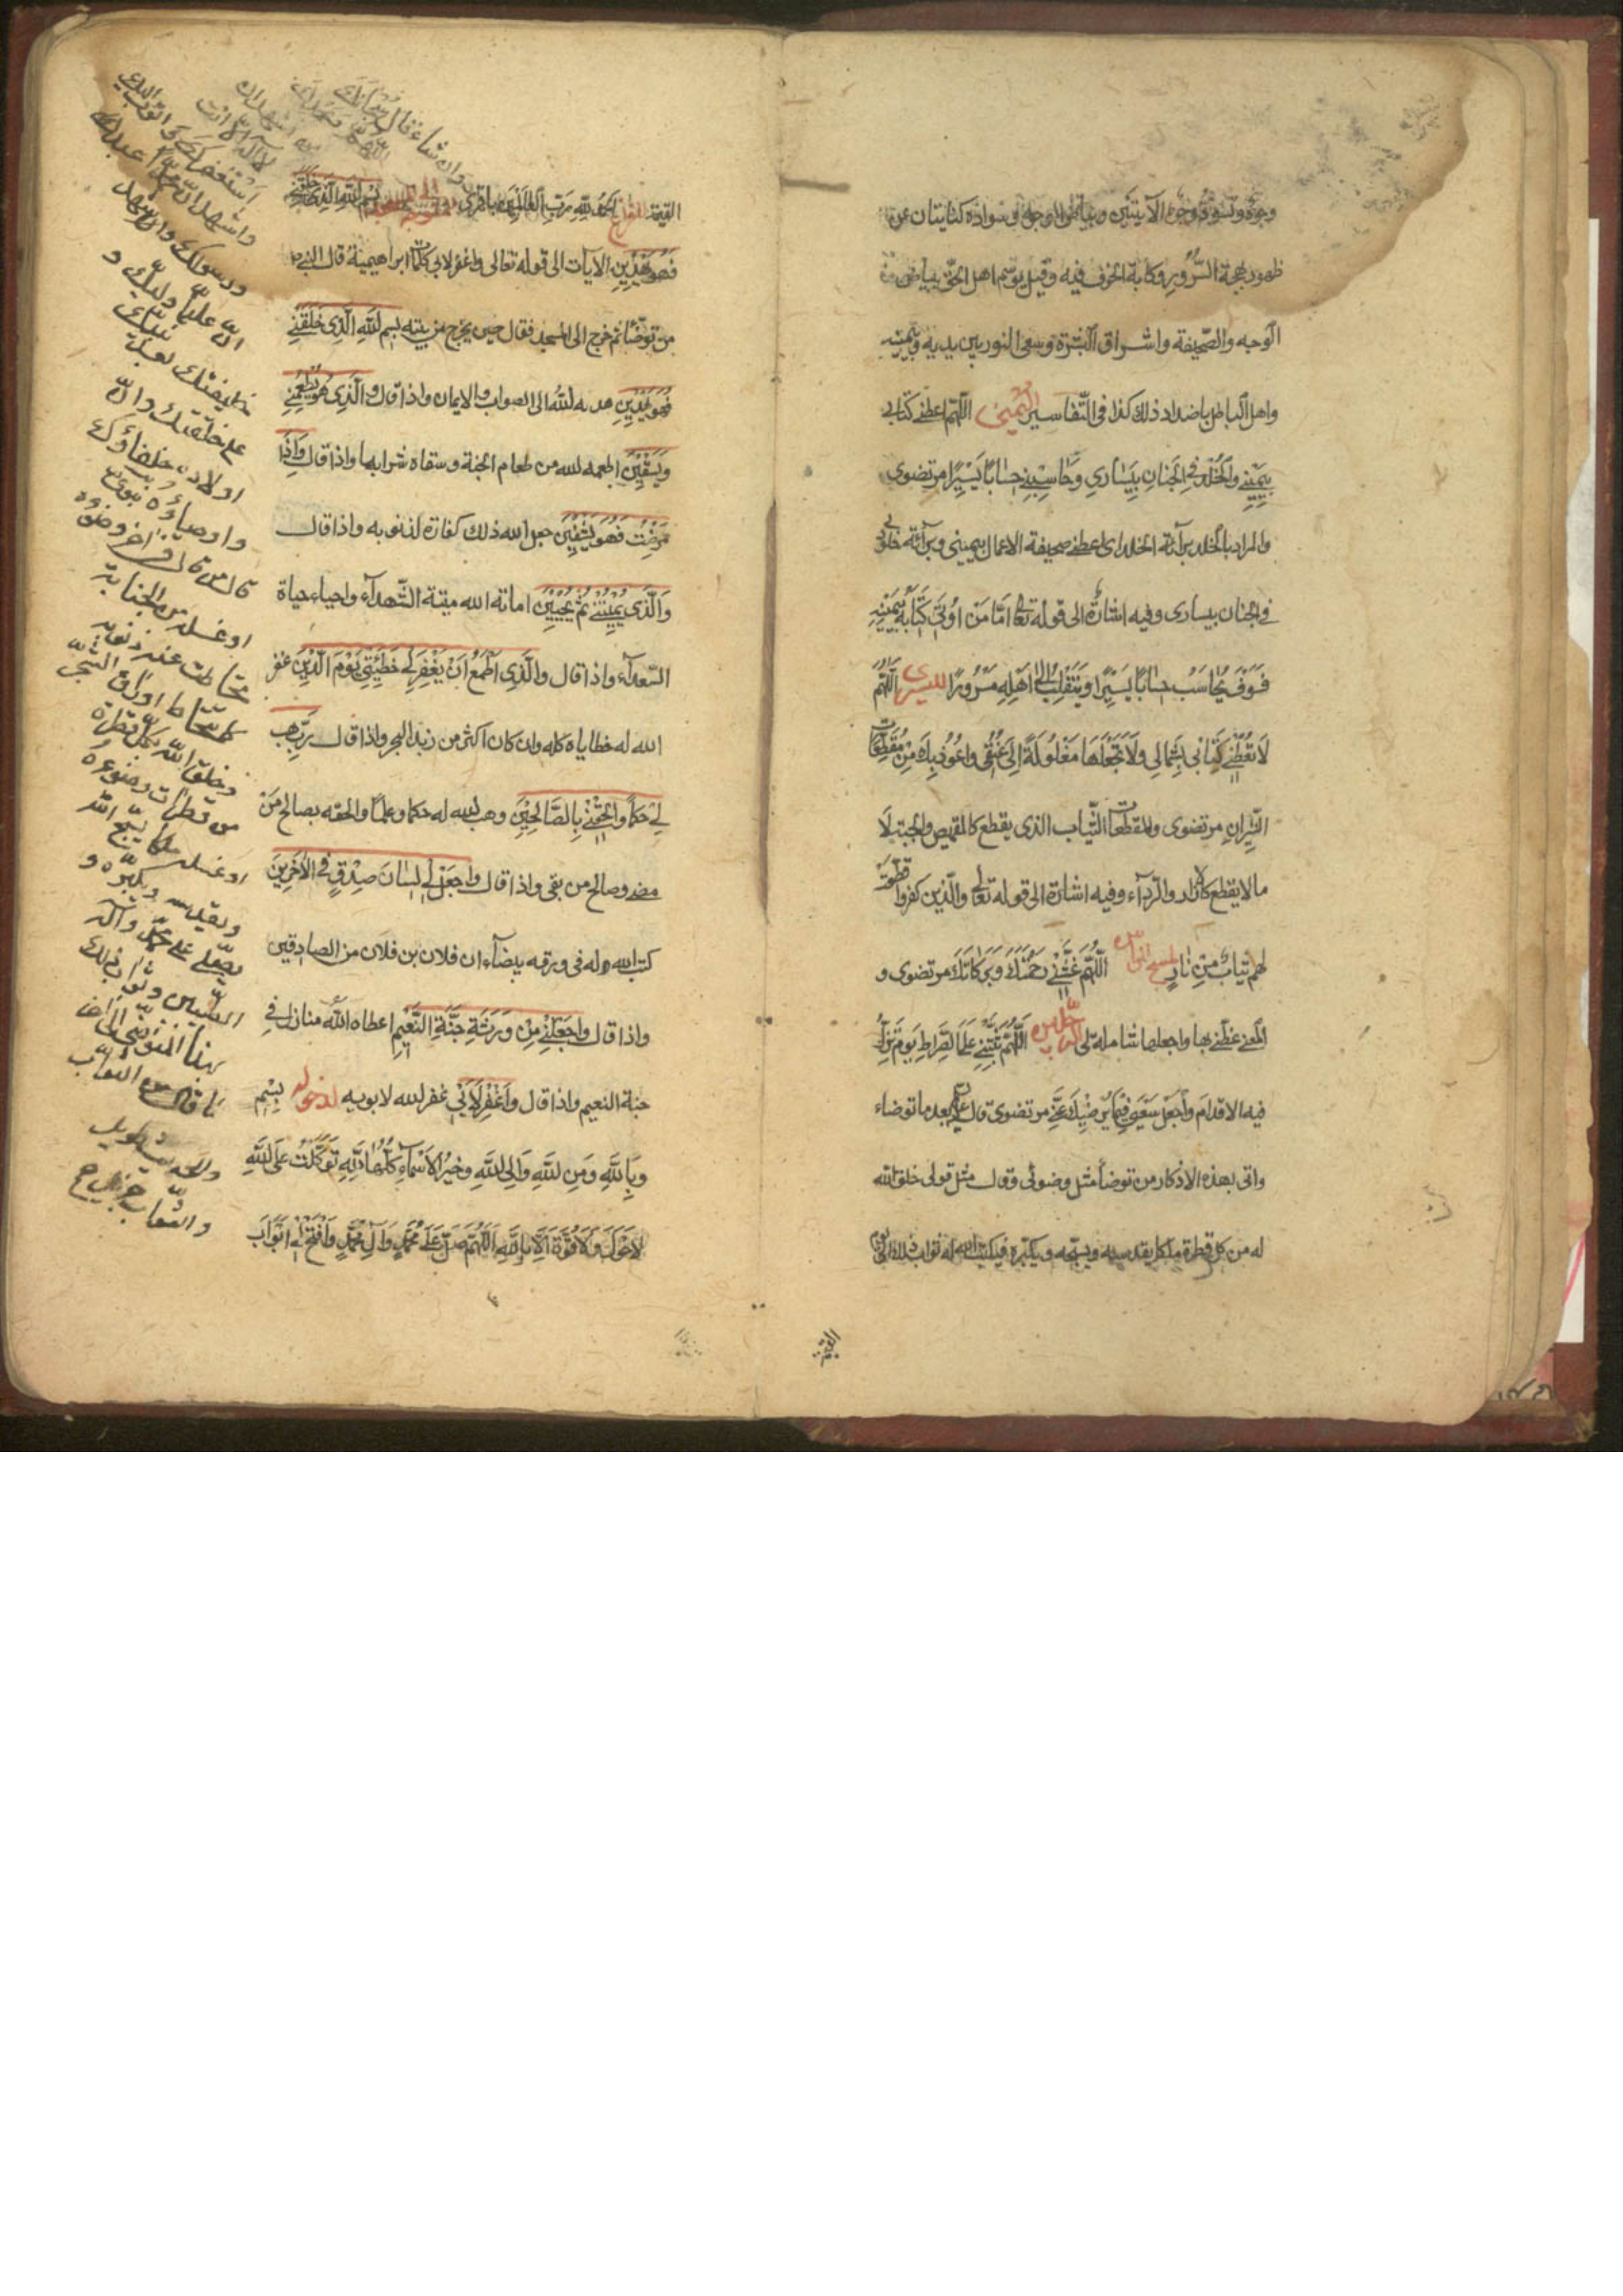 وجوه وتسود وجوه الآيتين وبياض الوجه وسواده كنايتان عن
ظهور بهجة السرور وكآبة الخوف فيه وقيل يوسم اهل الحق ببياض
الوجه والصحيفة واشراق البشرة وسعى النور بين يديه وبيمينه
واهل الباطل باضداد ذلك كذا فى التفاسير لليمنى اللهم اعطنى كتابى
بِيَمِيْنِي وَالْخُلْدَ فِي الْجِنَانِ بِيَسَارِي وَحَاسِبْنِي حِسَابًا يَسِيْرًا مرتضوى
والمراد بالخلد برآئة الخلد اى اعطنى صحيفة الاعمال بيمينى وبرآئة خلودى
فى الجنان بيسارى وفيه اشارة الى قوله تعالى امَّا مَنْ اُوتِيَ كِتَابَهُ بِيَمِيْنِهِ
فَسَوْفَ يُحَاسَبُ حِسَابًا يَسِيْرًا وَيَنْقَلِبُ اِلَى اَهْلِهِ مَسْرُورًا لليسرى اَللّهُمَّ
لَا تُعْطِنِي كِتَابِي بِشِمَالِي وَلَا تَجْعَلْهَا مَغْلُولَةً اِلَى عُنُقِي وَاَعُوذُ بِكَ مِنْ مُقَطَّعَاتِ
النِّيْرَانِ مرتضوى والمقطعات الثياب الذى يقطع كالقميص والجبة لا
ما لا يقطع كالازار والرداء وفيه اشارة الى قوله تعالى والذين كفروا قطعت
لهم ثياب من نار لمسح الرأس اَللّهُمَّ غَشِّنِي رَحْمَتَكَ وَبَرَكَاتِكَ مرتضوى و
المعنى غطنى بها واجعلها شاملة لى للرجلين اَللّهُمَّ ثَبِّتْنِي عَلَى الصِّرَاطِ يَوْمَ تَزِلُّ
فِيهِ الاَقْدَامَ وَاجْعَلْ سَعْيِي فِيمَا يُرْضِيْكَ عَنِّي مرتضوى قال بعد ما توضاء
واتى بهذه الاذكار من توضأ مثل وضوئى وقال مثل قولى خلق الله
له من كل قطرة ملكا يقدسه ويسبحه ويكبره فيكتب الله له ثواب ذلك الى يوم
القيمة
القيمة للفراغ الْحَمْدُ لِلَّهِ رَبِّ الْعَالَمِينَ باقرى بِسْمِ اللّهِ الَّذِي خَلَقَنِي
فَهُوَ يَهْدِينِ الآيات الى قوله تعالى واغفر لابى كلمات ابراهيمية قال النبى ص
من توضأ ثم خرج الى المسجد فقال حين يخرج من بيته بِسم اللهِ الَّذِي خَلَقَنِي
فَهُوَ يَهْدِينِ هداه الله الى الصواب والايمان واذا قال وَالَّذِي هُوَ يُطْعِمُنِي
وَيَسْقِينِ اطعمه الله من طعام الجنة وسقاه شرابها واذا قال وَاِذَا
مَرِضْتُ فَهُوَ يَشْفِينِ جعل الله ذلك كفارة لذنوبه واذا قال
وَالَّذِي يُمِيتُنِي ثُمَّ يُحْيِينِ اماته الله ميتة الشهدآء واحياه حياة
السعدآء واذا قال والَّذِي اَطْمَعُ اَنْ يَغْفِرَ لِي خَطِيئَتِي يَوْمَ الدِّينِ غفر
الله له خطاياه كله وان كان اكثر من زبد البحر واذا قال رَبِّ هَبْ
لِي حُكْمًا وَاَلْحِقْنِي بِالصَّالِحِينَ وهب الله له حكما وعلما والحقه بصالح مَنْ
مضى وصالح من بقى واذا قال وَاجْعَلْ لِي لِسَانَ صِدْقٍ فِي الآخِرِينَ
كتب الله له فى ورقه بيضآء ان فلان بن فلان من الصادقين
واذا قال وَاجْعَلْنِي مِنْ وَرَثَةِ جَنَّةِ النَّعِيمِ اعطاه الله منازل فى
جنة النعيم واذا قال وَاغْفِرْ لِاَبِي غفر الله لابويه لدخوله بِسْمِ
وَبِاللهِ وَمِنَ اللهِ وَاِلَى اللهِ وَخَيْرُ الاَسْمَاءِ كُلُّهَا لِلّهِ تَوَكَّلْتُ عَلَى اللهِ
لَاحَوْلَ وَلَا قُوَّةَ اِلَّا بِاللهِ اَللّهُمَّ صَلِّ عَلَى مُحَمَّدٍ وَآلِ مُحَمَّدٍ وَافْتَحْ لِي اَبْوَابَ
وان شاء قال سبحانك
اللهم وبحمدك
اشهد ان
لا اله الا انت
استغفرك واتوب اليك
واشهد ان محمدا عبدك
ورسولك واشهد
ان عليا وليك و
خليفتك بعد نبيك
على خلقك وان
اولاده خلفاؤك
واوصياؤه
قال من قال فى آخر وضوئه
او غسله من الجنابة
تحاطت عنه ذنوبه
كما تحاط اوراق الشجر
وخلق الله بكل قطرة
من قطرات وضوئه
او غسله ملكا يسبح الله
ويقدسه ويكبره و
يصلى على محمد وآله
الطيبين وثواب ذلك
لهذا المتوضى